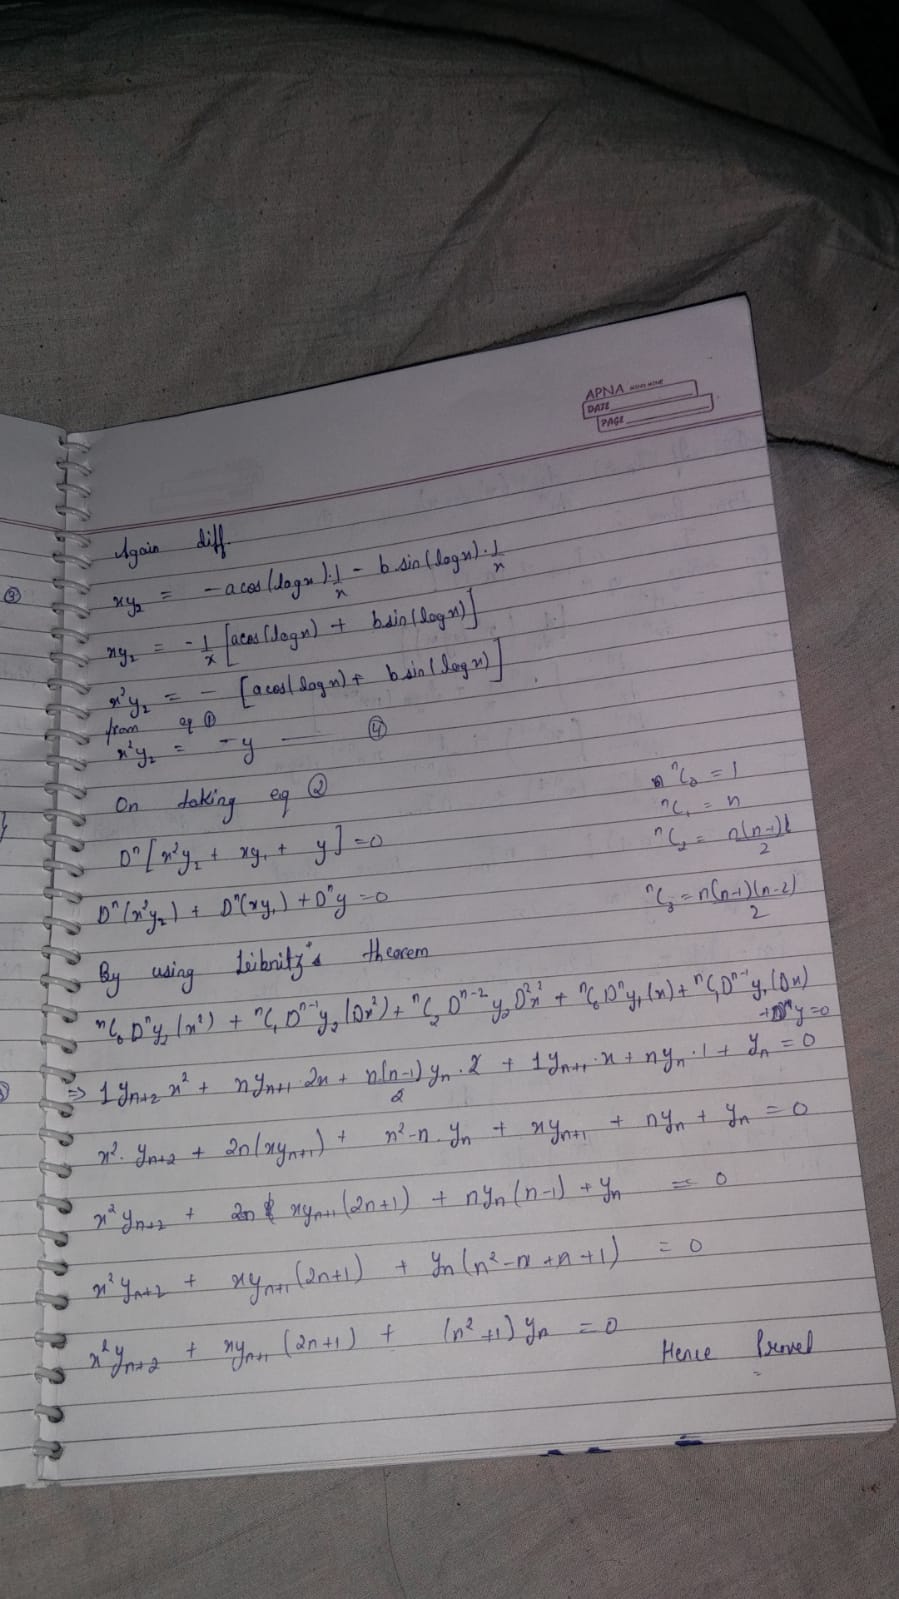 APNA
DATE
PAGE
Again diff.
③
xy₂ = - a cos(log x).1/x - b sin(log x).1/x
xy₂ = - 1/x [a cos(log x) + b sin(log x)]
x²y₂ = - [a cos(log x) + b sin(log x)]
from eq ①
x²y₂ = -y — ④
On taking eq ②
ⁿC₀ = 1
ⁿC₁ = n
Dⁿ[x²y₂ + xy₁ + y] = 0
ⁿC₂ = n(n-1)/2
Dⁿ(x²y₂) + Dⁿ(xy₁) + Dⁿy = 0
ⁿC₃ = n(n-1)(n-2)/2
By using Leibnitz's theorem
ⁿC₀ Dⁿy₂(x²) + ⁿC₁ Dⁿ⁻¹y₂(Dx²) + ⁿC₂ Dⁿ⁻²y₂D²x² + ⁿC₀Dⁿy₁(x) + ⁿC₁Dⁿ⁻¹y₁(Dx)
+ Dⁿy = 0
⇒ 1yₙ₊₂ x² + nyₙ₊₁ 2x + n(n-1)/2 yₙ.2 + 1yₙ₊₁.x + nyₙ.1 + yₙ = 0
x².yₙ₊₂ + 2n(xyₙ₊₁) + n²-n.yₙ + xyₙ₊₁ + nyₙ + yₙ = 0
x²yₙ₊₂ + xyₙ₊₁(2n+1) + nyₙ(n-1) + yₙ = 0
x²yₙ₊₂ + xyₙ₊₁(2n+1) + yₙ(n²-n+n+1) = 0
x²yₙ₊₂ + xyₙ₊₁(2n+1) + (n²+1)yₙ = 0
Hence Proved